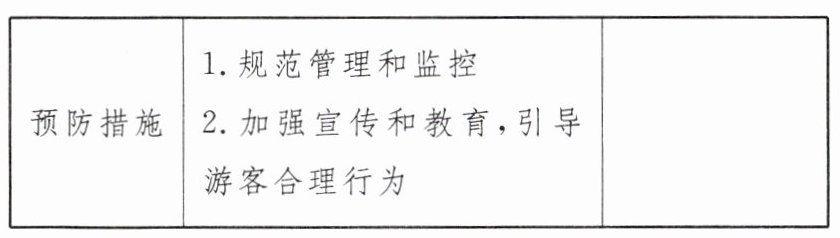 预防措施
1. 规范管理和监控
2. 加强宣传和教育,引导
游客合理行为